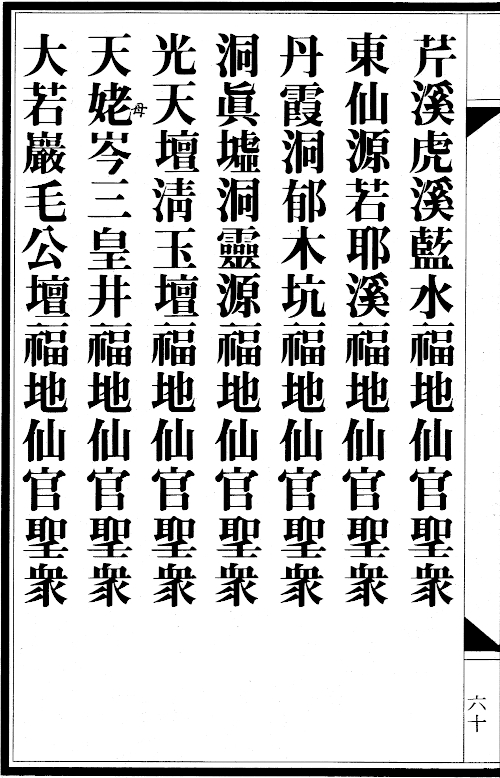 芹溪虎溪藍水福地仙官聖衆
東仙源若耶溪福地仙官聖衆
丹霞洞郁木坑福地仙官聖衆
洞眞墟洞靈源福地仙官聖衆
光天壇淸玉壇福地仙官聖衆
天姥母岑三皇井福地仙官聖衆
大若巖毛公壇福地仙官聖衆
六十